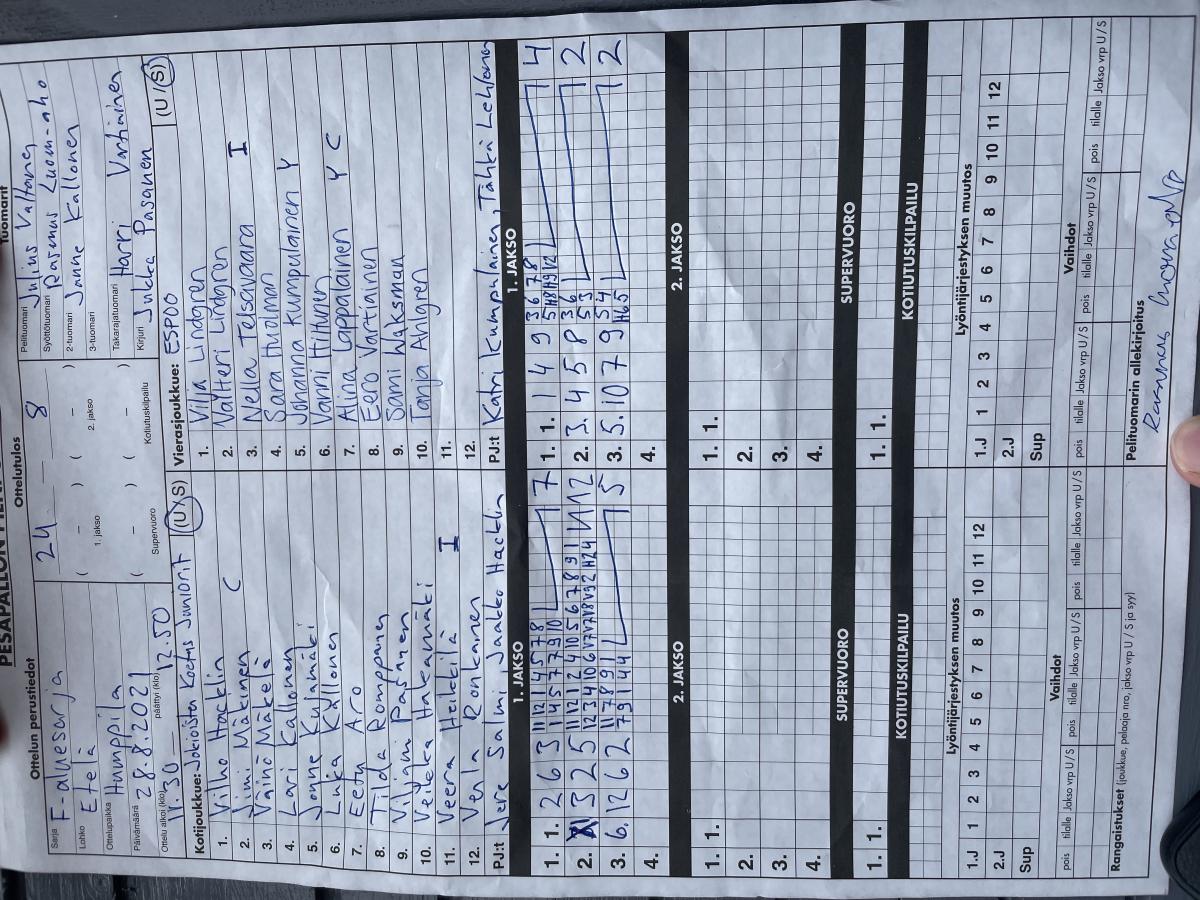 Ottelun perustiedot
Sarja F-aluesarja
Lohko Etelä
Ottelupaikka Humppila
Päivämäärä 28.8.2021
Ottelu alkoi (klo) 11.30 päättyi (klo) 12.50
Ottelutulos
24 — 8
( – ) ( – )
1. jakso 2. jakso
( – ) ( – )
Supervuoro Kotiutuskilpailu
Tuomarit
Pelituomari Julius Valtanen
Syöttötuomari Rasmus Luom-aho
2-tuomari Janne Kallonen
3-tuomari
Takarajatuomari Harri Vartiainen
Kirjuri Jukka Pasanen
Kotijoukkue: Jokioisten Koetus Juniorit (U / S)
1. Vilho Hacklin
2. Niini Mäkinen C
3. Väinö Mäkelä
4. Lari Kallonen
5. Jonne Kulamäki
6. Luka Kallonen
7. Eetu Aro
8. Tilda Romppanen
9. Viljami Pasanen
10. Veikka Hakamäki
11. Veera Heikkilä I
12. Venla Ronkainen
PJ:t Jere Salmi Jaakko Hacklin
Vierasjoukkue: ESPOO (U / S)
1. Vilja Lindgren
2. Valtteri Lindgren
3. Nella Telsavaara I
4. Saara Holman
5. Johanna Kumpulainen Y
6. Vanni Hiltunen
7. Alina Lappalainen Y C
8. Eero Vartiainen
9. Sami Waksman
10. Tanja Ahlgren
11.
12.
PJ:t Katri Kumpulainen, Tähkä Lehtonen
1. JAKSO
1. 1. 2 6 3 11 12 1 4 5 7 8 7
1 4 5 7 9 10
2. 3 2 5 11 12 1 2 4 10 5 6 7 8 9 1 12
3. 6. 12 6 2 11 7 8 9 1 5
7 9 1 4 4
4.
1. JAKSO
1. 1. 1 4 9 3 6 7 8 4
5 H8 H9 H2
2. 3. 4 5 8 3 6 2
5 3
3. 5. 10 7 9 5 4 2
H6 5
4.
2. JAKSO
1. 1.
2.
3.
4.
2. JAKSO
1. 1.
2.
3.
4.
SUPERVUORO
1. 1.
SUPERVUORO
1. 1.
KOTIUTUSKILPAILU
KOTIUTUSKILPAILU
Lyöntijärjestyksen muutos
1.J 1 2 3 4 5 6 7 8 9 10 11 12
2.J
Sup
Lyöntijärjestyksen muutos
1.J 1 2 3 4 5 6 7 8 9 10 11 12
2.J
Sup
Vaihdot
pois tilalle Jakso vrp U / S pois tilalle Jakso vrp U / S pois tilalle Jakso vrp U / S
Vaihdot
pois tilalle Jakso vrp U / S pois tilalle Jakso vrp U / S pois tilalle Jakso vrp U / S
Rangaistukset (joukkue, pelaaja nro, jakso vrp U / S ja syy)
Pelituomarin allekirjoitus